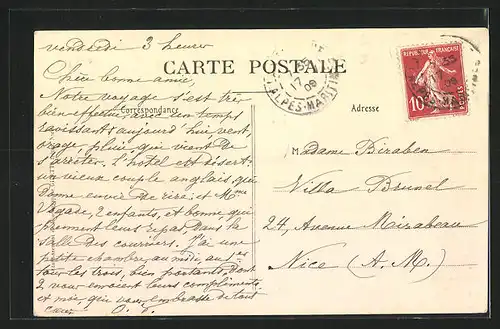 vendredi 3 heures
CARTE POSTALE
Chère bonne amie,
Correspondance
Adresse
Notre voyage s'est très
bien effectué, avec un temps
ravissant; aujourd'hui, vent,
orage, pluie qui vient de
s'arrêter. L'hôtel est désert:
un vieux couple anglais qui
donne envie de rire, et Mme
Vogade, 2 enfants, et bonne, qui
prennent leurs repas dans la
salle des courriers. J'ai une
petite chambre au midi,
tous les trois, bien portants, dont
2 vous envoient leurs compliments
et moi, qui vous embrasse de tout
cœur
Madame Biraben
Villa Brunel
24, Avenue Mirabeau
Nice (A. M.)
RÉPUBLIQUE FRANÇAISE
10
POSTES
ALPES-MARITIMES